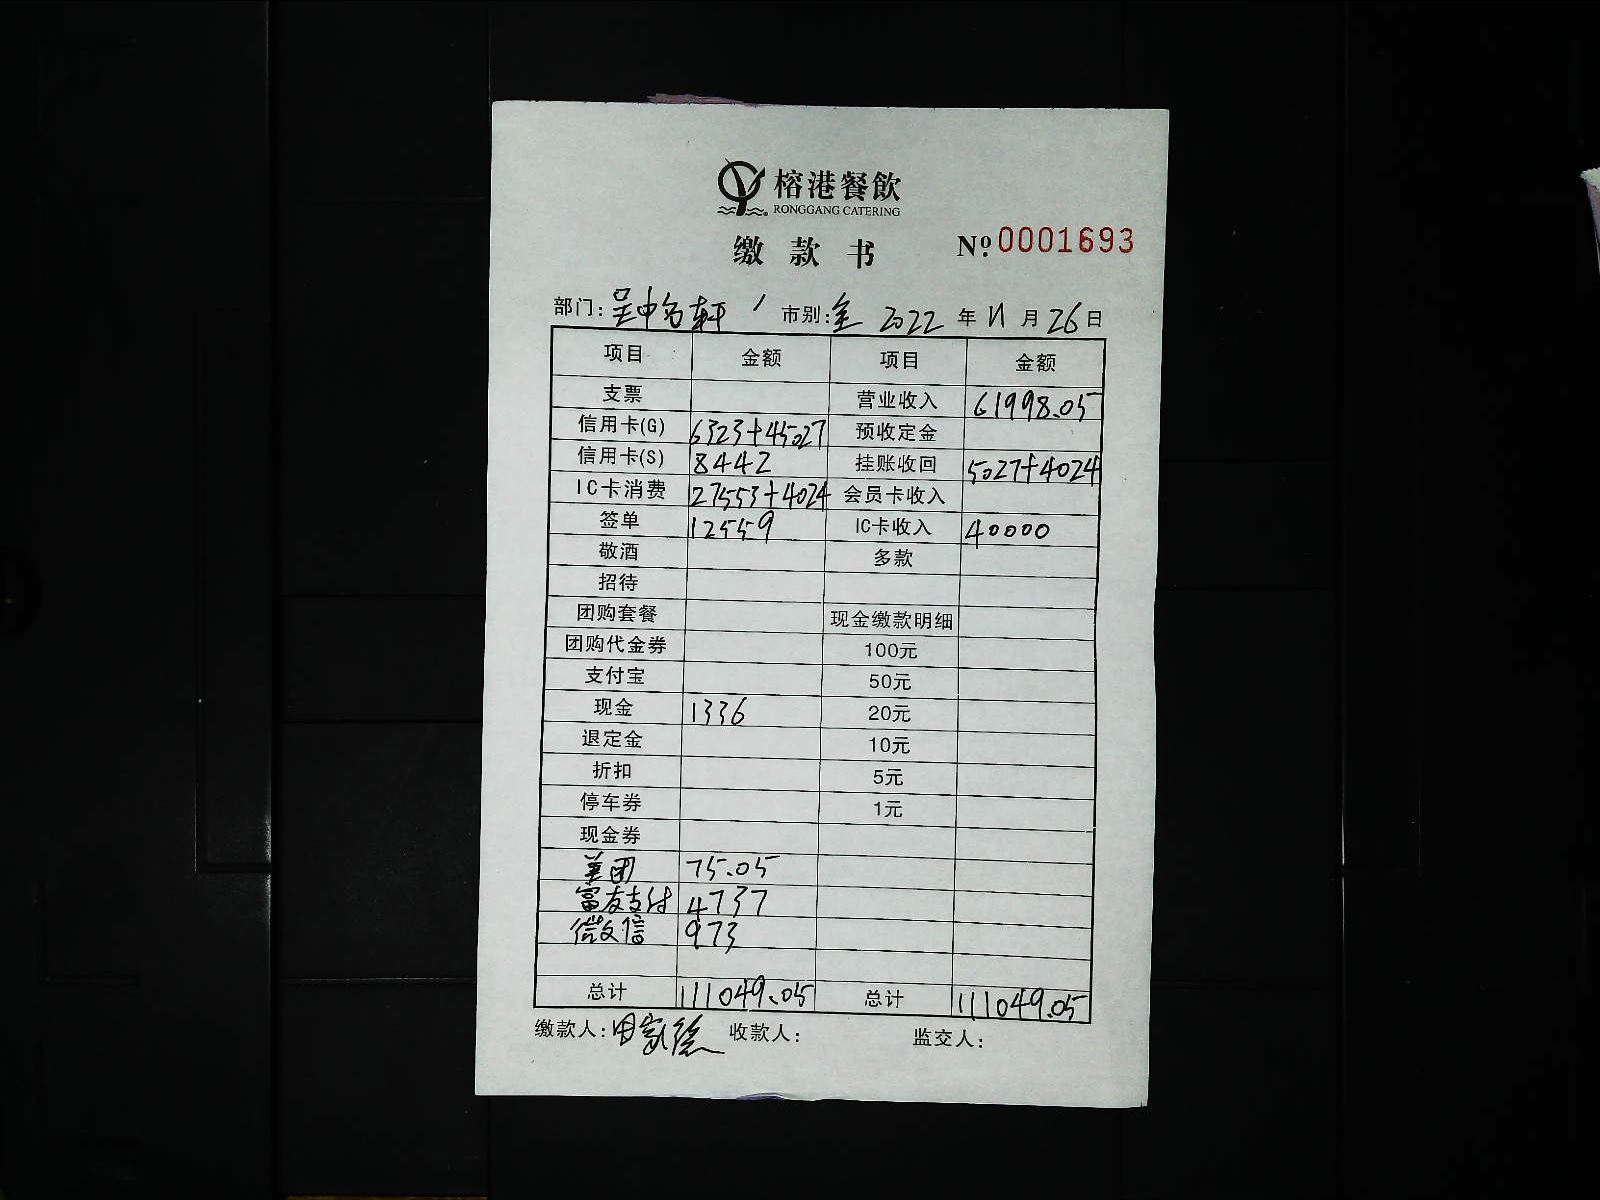 榕港餐飲
RONGGANG CATERING
缴款书 Nº 0001693
部门: 吴中名轩 市别: 全 2022 年 11 月 26 日
项目 金额 项目 金额
支票 营业收入 61998.05
信用卡(G) 6323+45027 预收定金
信用卡(S) 8442 挂账收回 5027+4024
IC卡消费 27553+4024 会员卡收入
签单 12559 IC卡收入 40000
敬酒 多款
招待
团购套餐 现金缴款明细
团购代金券 100元
支付宝 50元
现金 1336 20元
退定金 10元
折扣 5元
停车券 1元
现金券
美团 75.05
富友支付 4737
微信 973
总计 111049.05 总计 111049.05
缴款人: 收款人: 监交人: